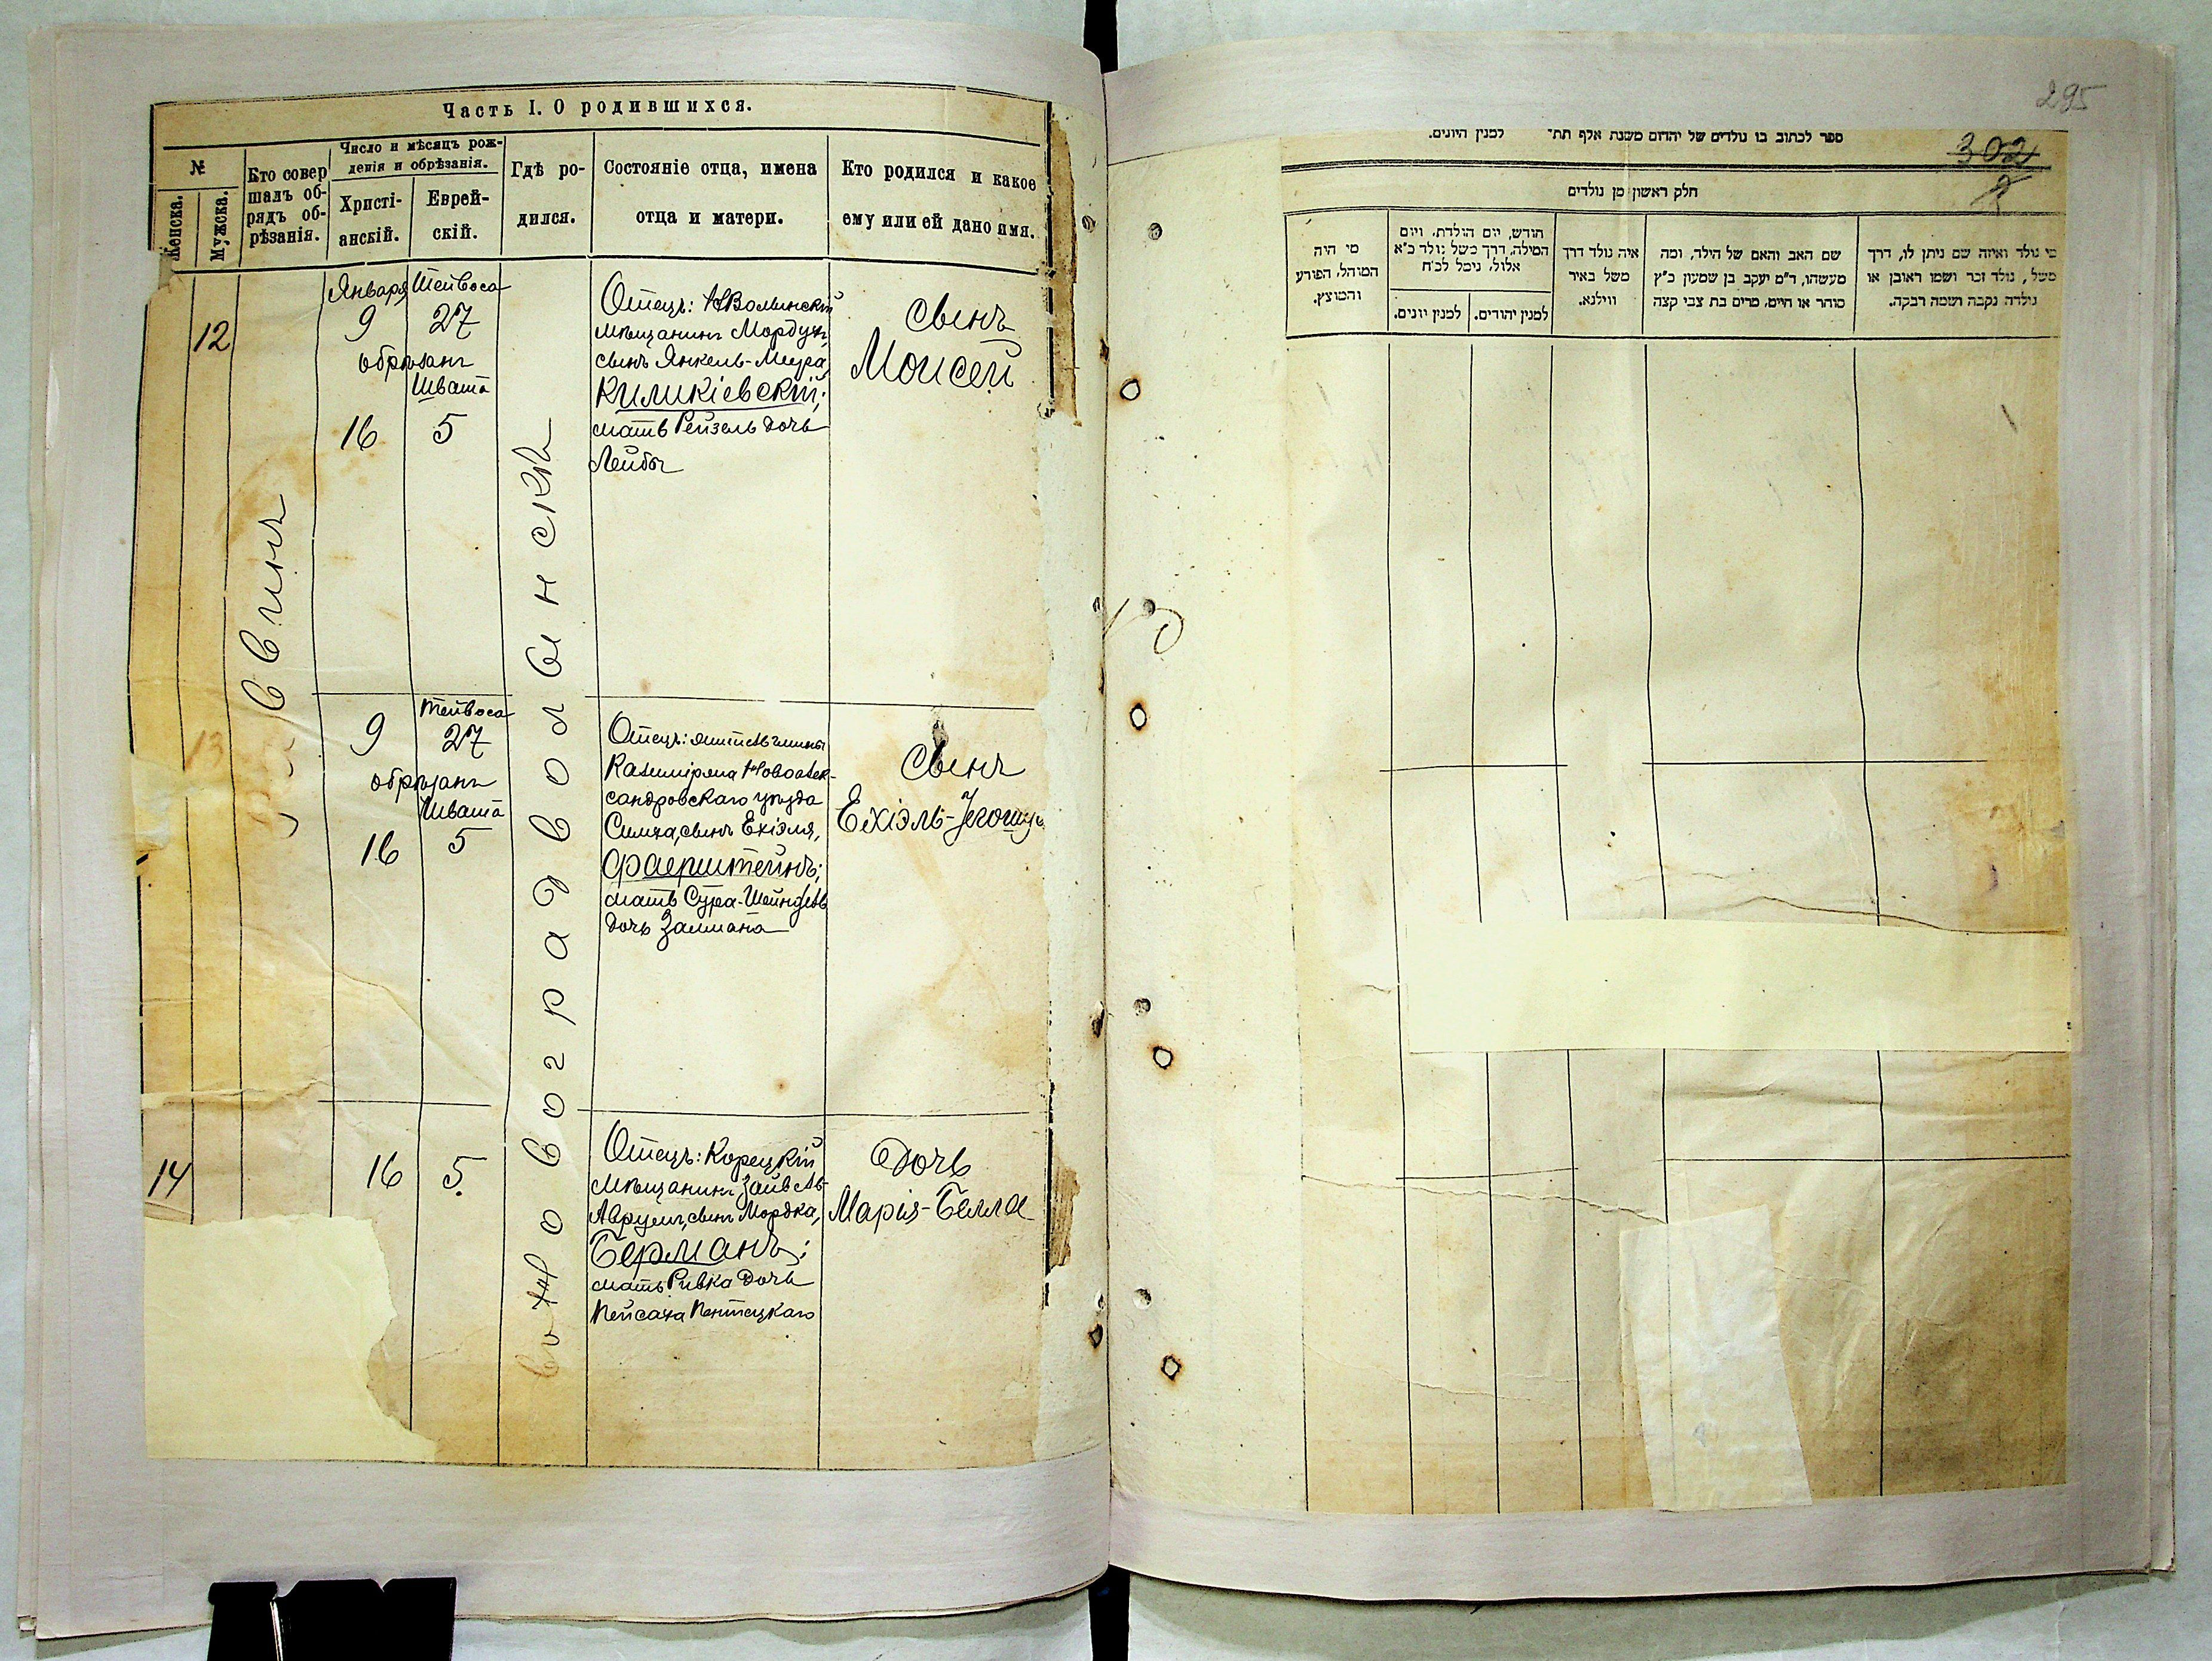 Часть I. О родившихся.
№
Женска.
Мужска.
Кто совер
шалъ об-
рядъ об-
рѣзанія.
Число и мѣсяцъ рож-
денія и обрѣзанія.
Христі-
анскій.
Еврей-
скій.
Гдѣ ро-
дился.
Состояніе отца, имена
отца и матери.
Кто родился и какое
ему или ей дано имя.
12
Января
9
Тейвоса
27
обрѣзанъ
Швата
16
5
Отецъ: НВолынскій
мѣщанинъ Мордухъ,
сынъ Янкель-Меера,
Киликіевскій;
мать Рейзель дочь
Лейбы
сынъ
Моисей
13
9
Тейвоса
27
обрѣзанъ
Швата
16
5
Отецъ:
Казиміряна Новоалек-
сандровскаго уѣзда
Симха, сынъ Ехіэля,
Фаерштейнъ;
мать Сура-Шейндель
дочь Залмана
Сынъ
Ехіэль-Іегошуа
14
16
5.
Отецъ: Корецкій
мѣщанинъ Зайвель-
Аврумъ, сынъ Мордка,
Берманъ;
мать Ривка дочь
Пейсаха
Дочь
Марія-Белла
Новоградволынскъ
295
ספר לכתוב בו נולדים של יהדום משנת אלף תת״ למנין היונים.
302
2
חלק ראשון מן נולדים
מי נולד ואיזה שם ניתן לו, דרך
משל, נולד זכר ושמו ראובן או
נולדה נקבה ושמה רבקה.
שם האב והאם של הילד, ומה
מעשהו, ד״מ יעקב בן שמעון כ״ץ
סוחר או חיים, מרים בת צבי קצה
איה נולד דרך
משל באיר
ווילנא.
חודש, יום הולדת, ויום
המילה, דרך משל נולד כ״א
אלול, נימל לכ״ח
למנין יהודים.
למנין יונים.
מי היה
המוהל, הפורע
והמוצץ.